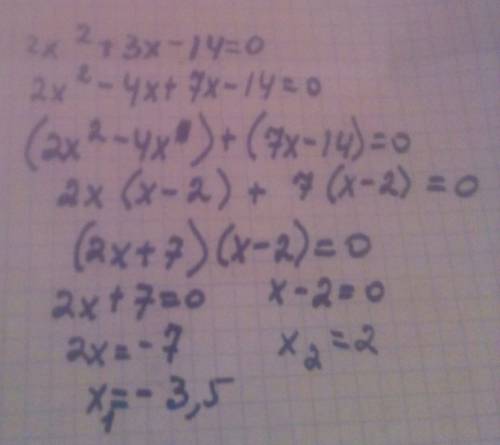 2x² + 3x - 14 = 0
2x² - 4x + 7x - 14 = 0
(2x² - 4x) + (7x - 14) = 0
2x (x - 2) + 7 (x - 2) = 0
(2x + 7) (x - 2) = 0
2x + 7 = 0 x - 2 = 0
2x = -7 x₂ = 2
x₁ = -3,5